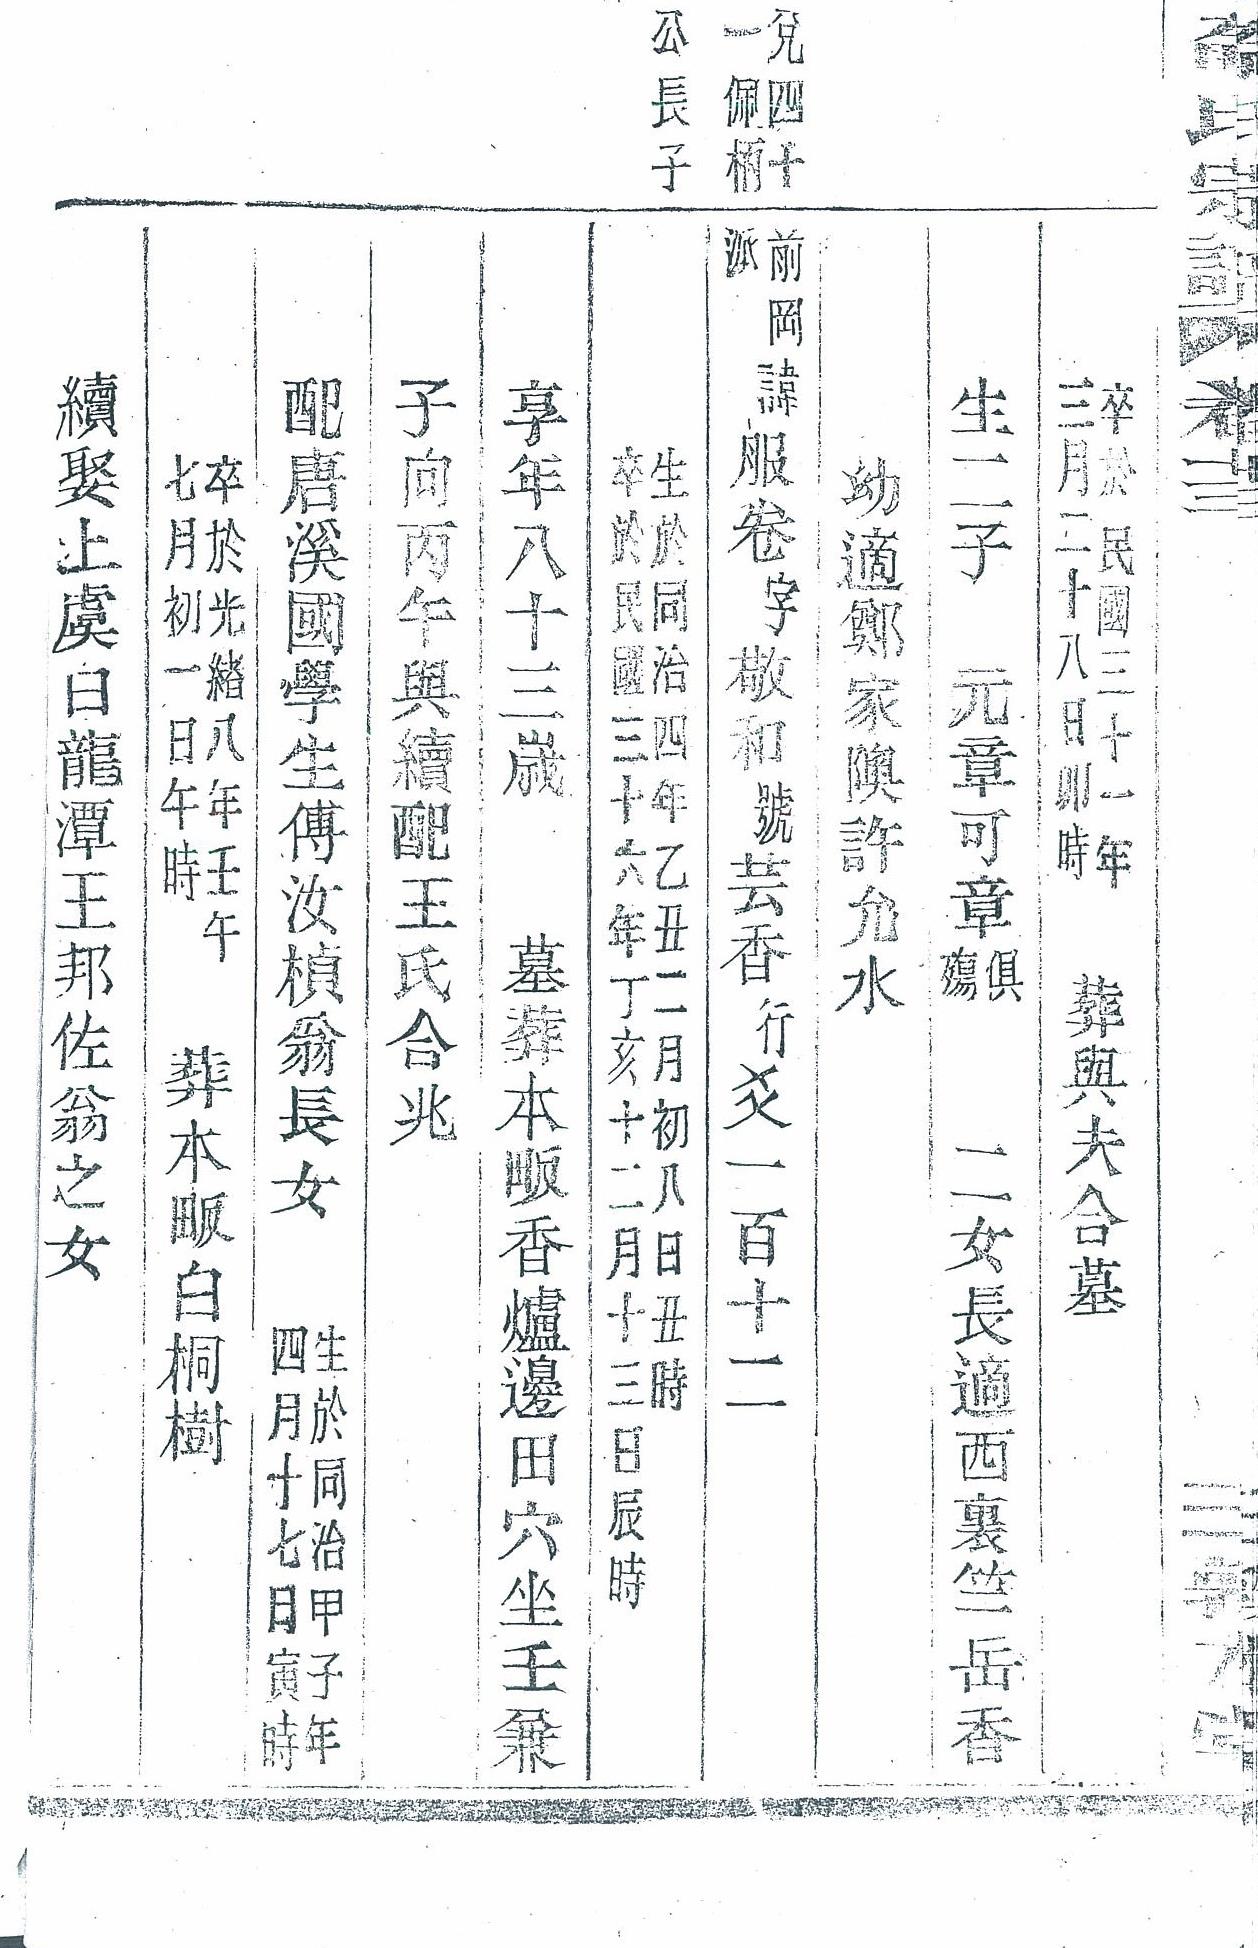 卒於民國三十一年
三月二十八日卯時
葬與夫合墓
生二子 元章可章俱殤 二女長適西裏竺岳香
幼適鄭家隩許允水
兌四十
一佩柄
公長子
前岡
派
諱服卷字敬和號芸香行爻一百十二
生於同治四年乙丑二月初八日丑時
卒於民國三十六年丁亥十二月十三日辰時
享年八十三歲 墓葬本畈香爐邊田穴坐壬兼
子向丙午與續配王氏合兆
配唐溪國學生傅汝楨翁長女
生於同治甲子年
四月十七日寅時
卒於光緒八年壬午
七月初一日午時
葬本畈白桐樹
續娶上虞白龍潭王邦佐翁之女